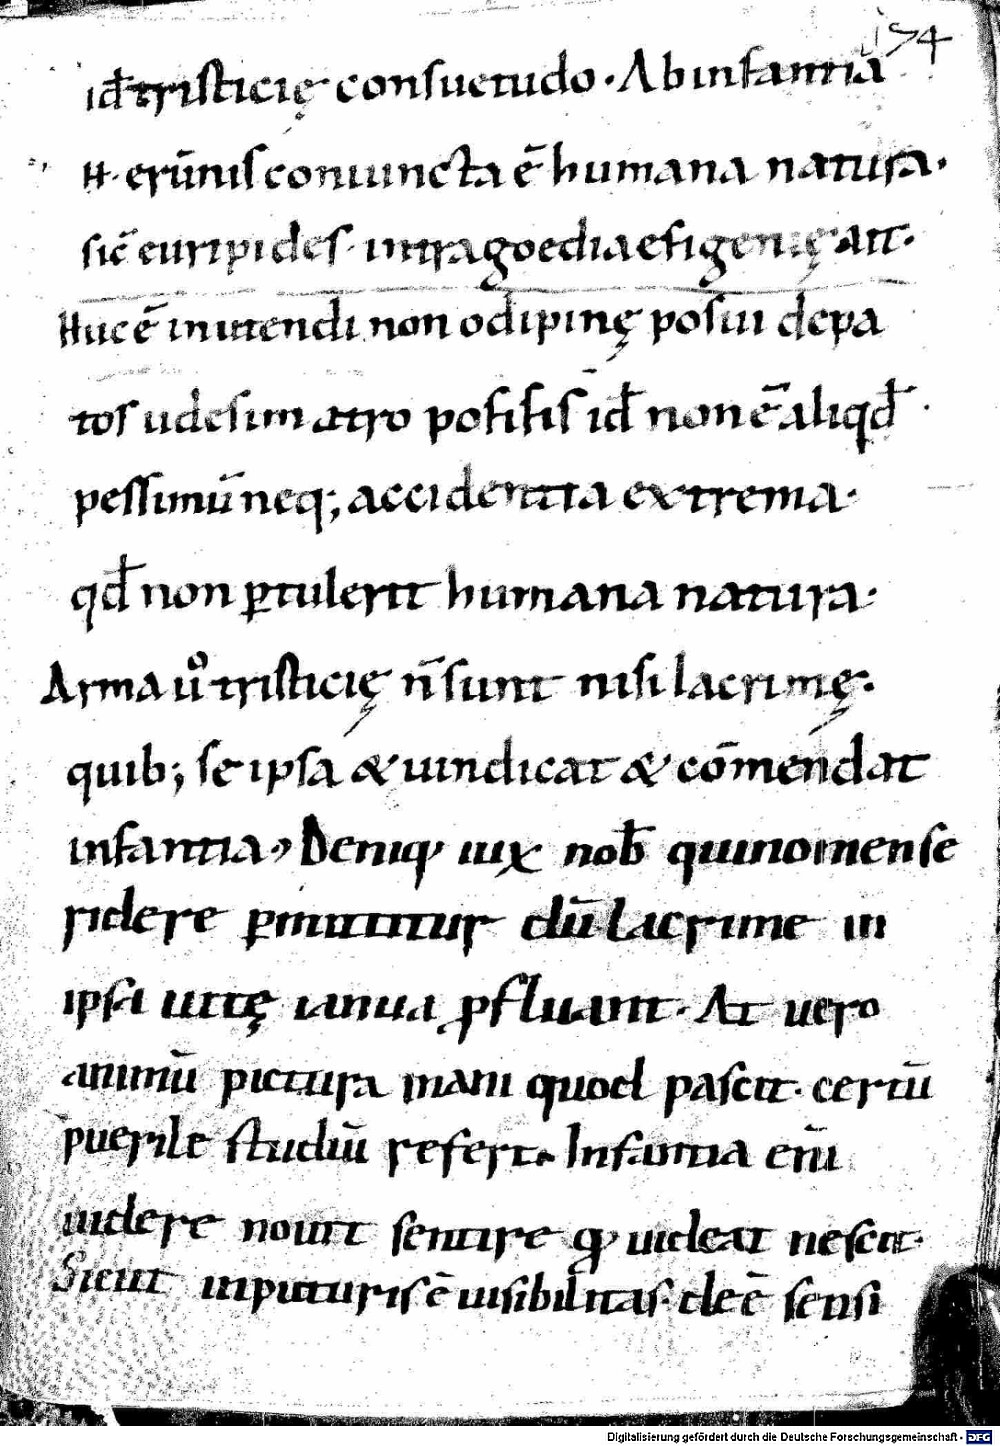 174
id̄ tristicię consuetudo· Ab infantia
H· erūnis coniuncta ē humana natura·
sic̄ euripides· in tragoedia efigenię ait·
Huc ē inuitendi non odipinę posui depa
tos udesim atro positis id̄ non ē aliqd̄·
pessimū neq; accidentia extrema·
qd̄ non ꝑtulerit humana natura·
Arma ůͦ tristicię n̄ sunt nisi lacrimę·
quib; se ipsa & uindicat & cōmendat
infantia· Deniq· iux nob̄ quinomense
ridere ꝑmittitur dū lacrime in
ipsa uitę ianua ꝓfluant· At uero
animū pictura inani quod pascit· certū
puerile studiū refert· Infantia enī
uidere nouit sentire q· uideat nescit·
Sicut in picturis ē uisibilitas· deē sensi
Digitalisierung gefördert durch die Deutsche Forschungsgemeinschaft - DFG